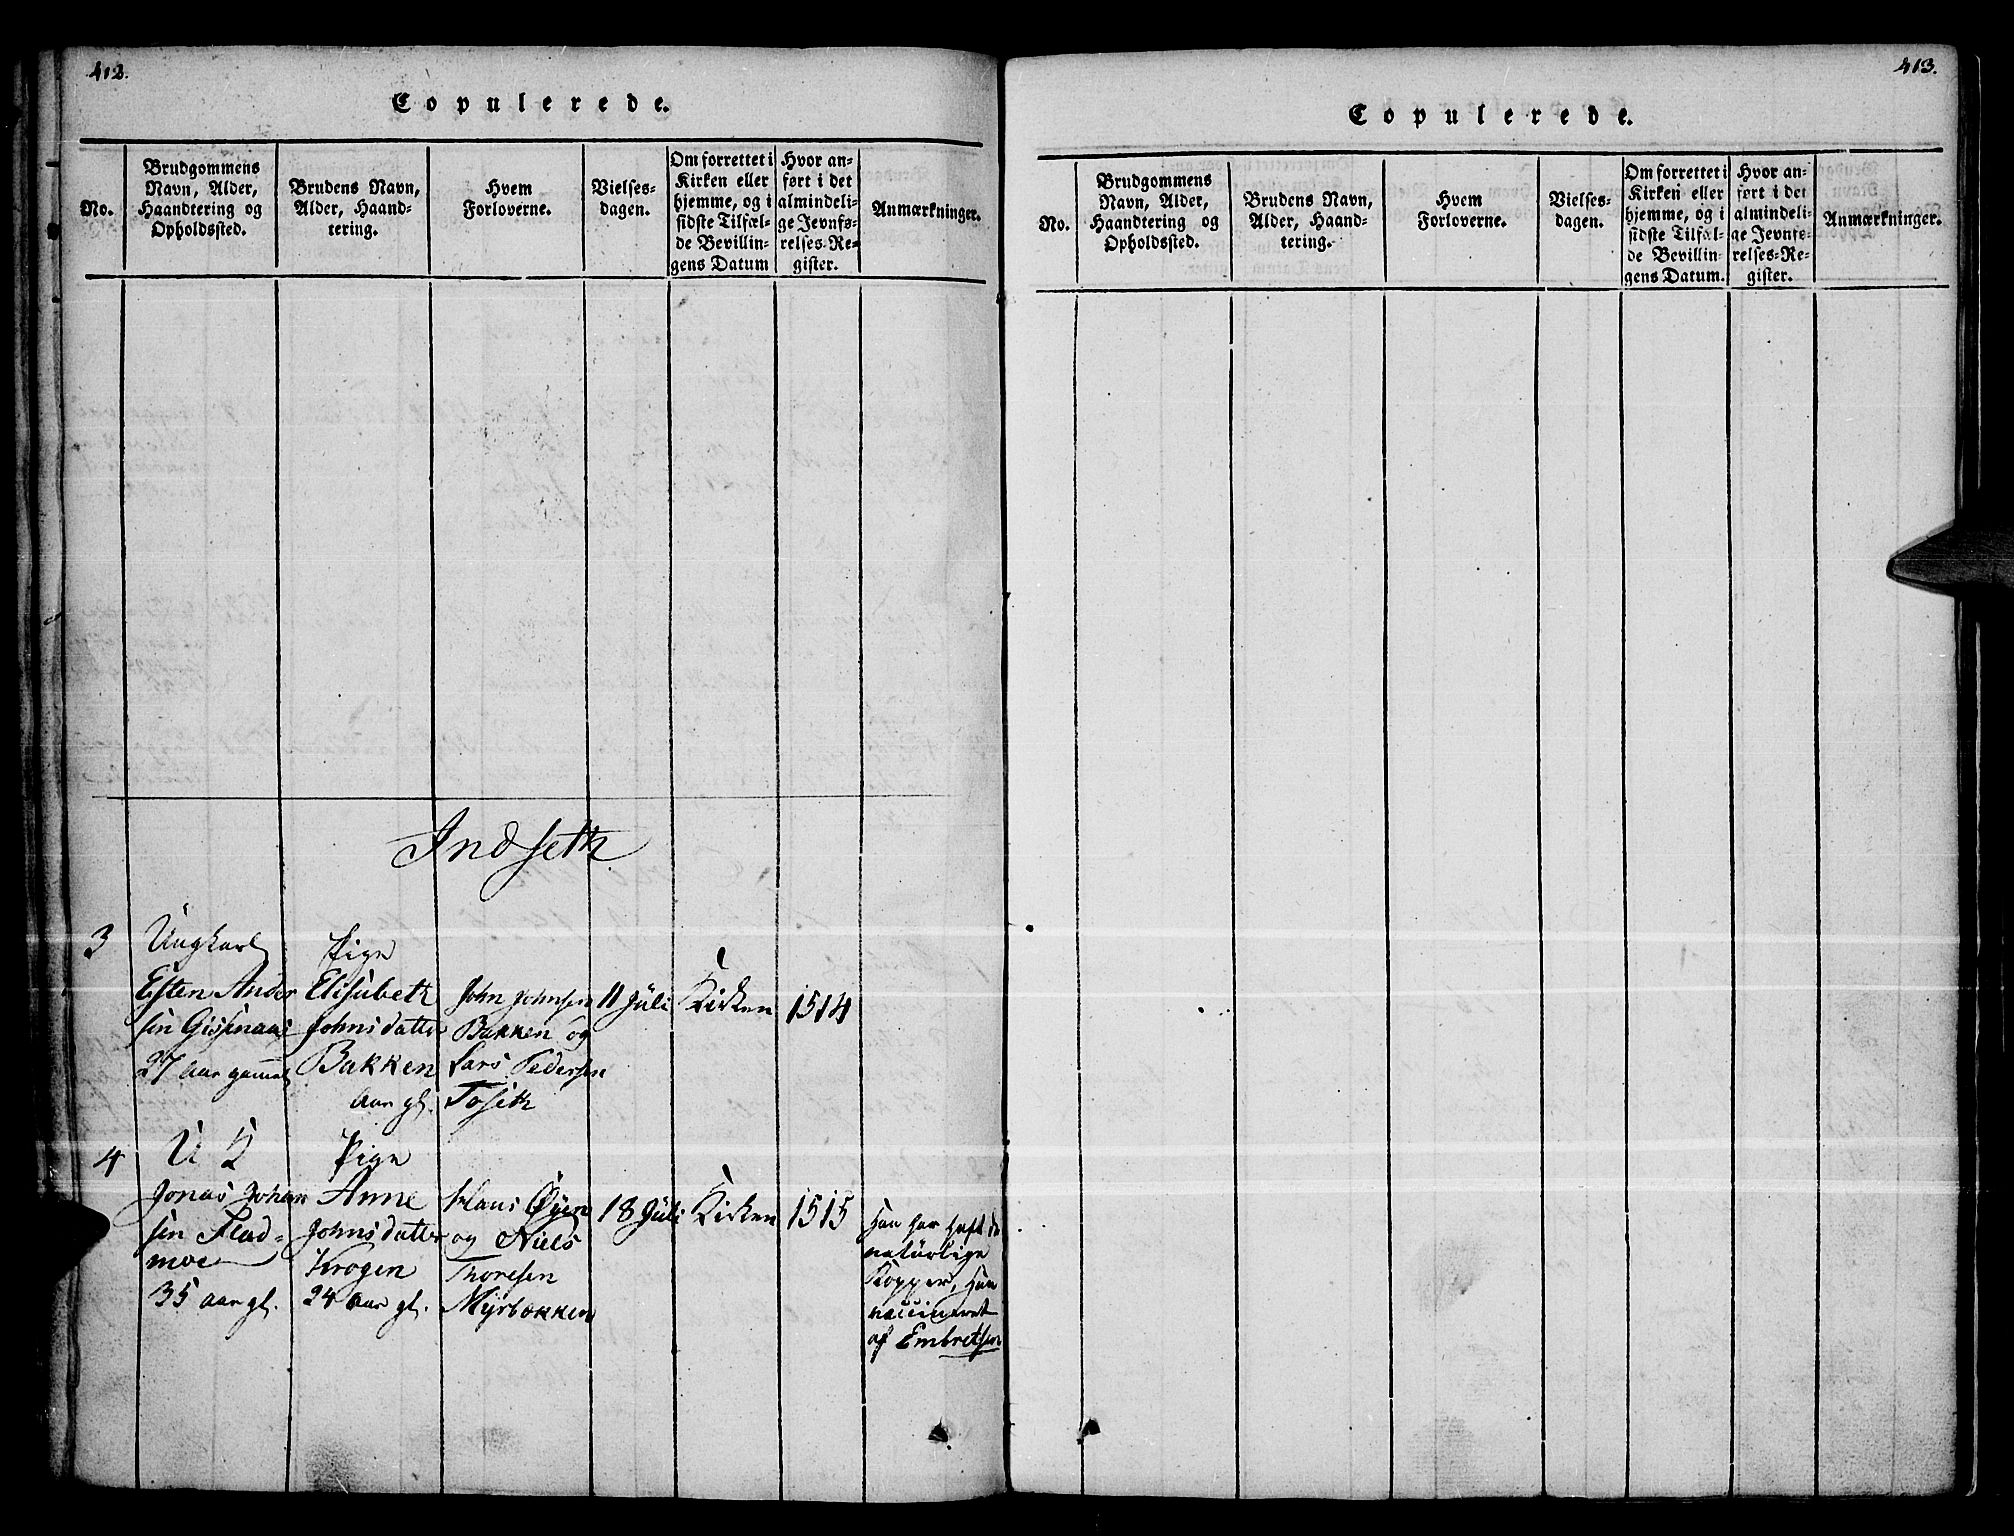 412.
Copulerede.
No.
Brudgommens
Navn, Alder,
Haandtering og
Opholdssted.
Brudens Navn,
Alder, Haand-
tering.
Hvem
Forloverne.
Vielses-
dagen.
Om forrettet i
Kirken eller
hjemme, og i
sidste Tilfæl-
de Bevillin-
gens Datum
Hvor an-
ført i det
almindeli-
ge Jevnfø-
relses-Re-
gister.
Anmærkninger.
Indseth
3
Ungkarl
Esten Ander
sen
27 Aar gammel
Pige
Elisabeth
Johnsdatter
Bakken
Aar gl.
John Johnsen
Bakken og
Lars Pedersen
Toseth
11 Juli
Kirken
1514
4
U K
Jonas Johan
sen Flad-
moe
35 Aar gl.
Pige
Anne
Johnsdatter
Krogen
24 Aar gl.
Klaus Øyen
og Niels
Thoresen
Myrbakken
18 Juli
Kirken
1515
Han har haft de
natürlige
Kopper, Hun
vaccineret
af Embretsen
413.
Copulerede.
No.
Brudgommens
Navn, Alder,
Haandtering og
Opholdssted.
Brudens Navn,
Alder, Haand-
tering.
Hvem
Forloverne.
Vielses-
dagen.
Om forrettet i
Kirken eller
hjemme, og i
sidste Tilfæl-
de Bevillin-
gens Datum.
Hvor an-
ført i det
almindeli-
ge Jevnfø-
relses-Re-
gister.
Anmærkninger.